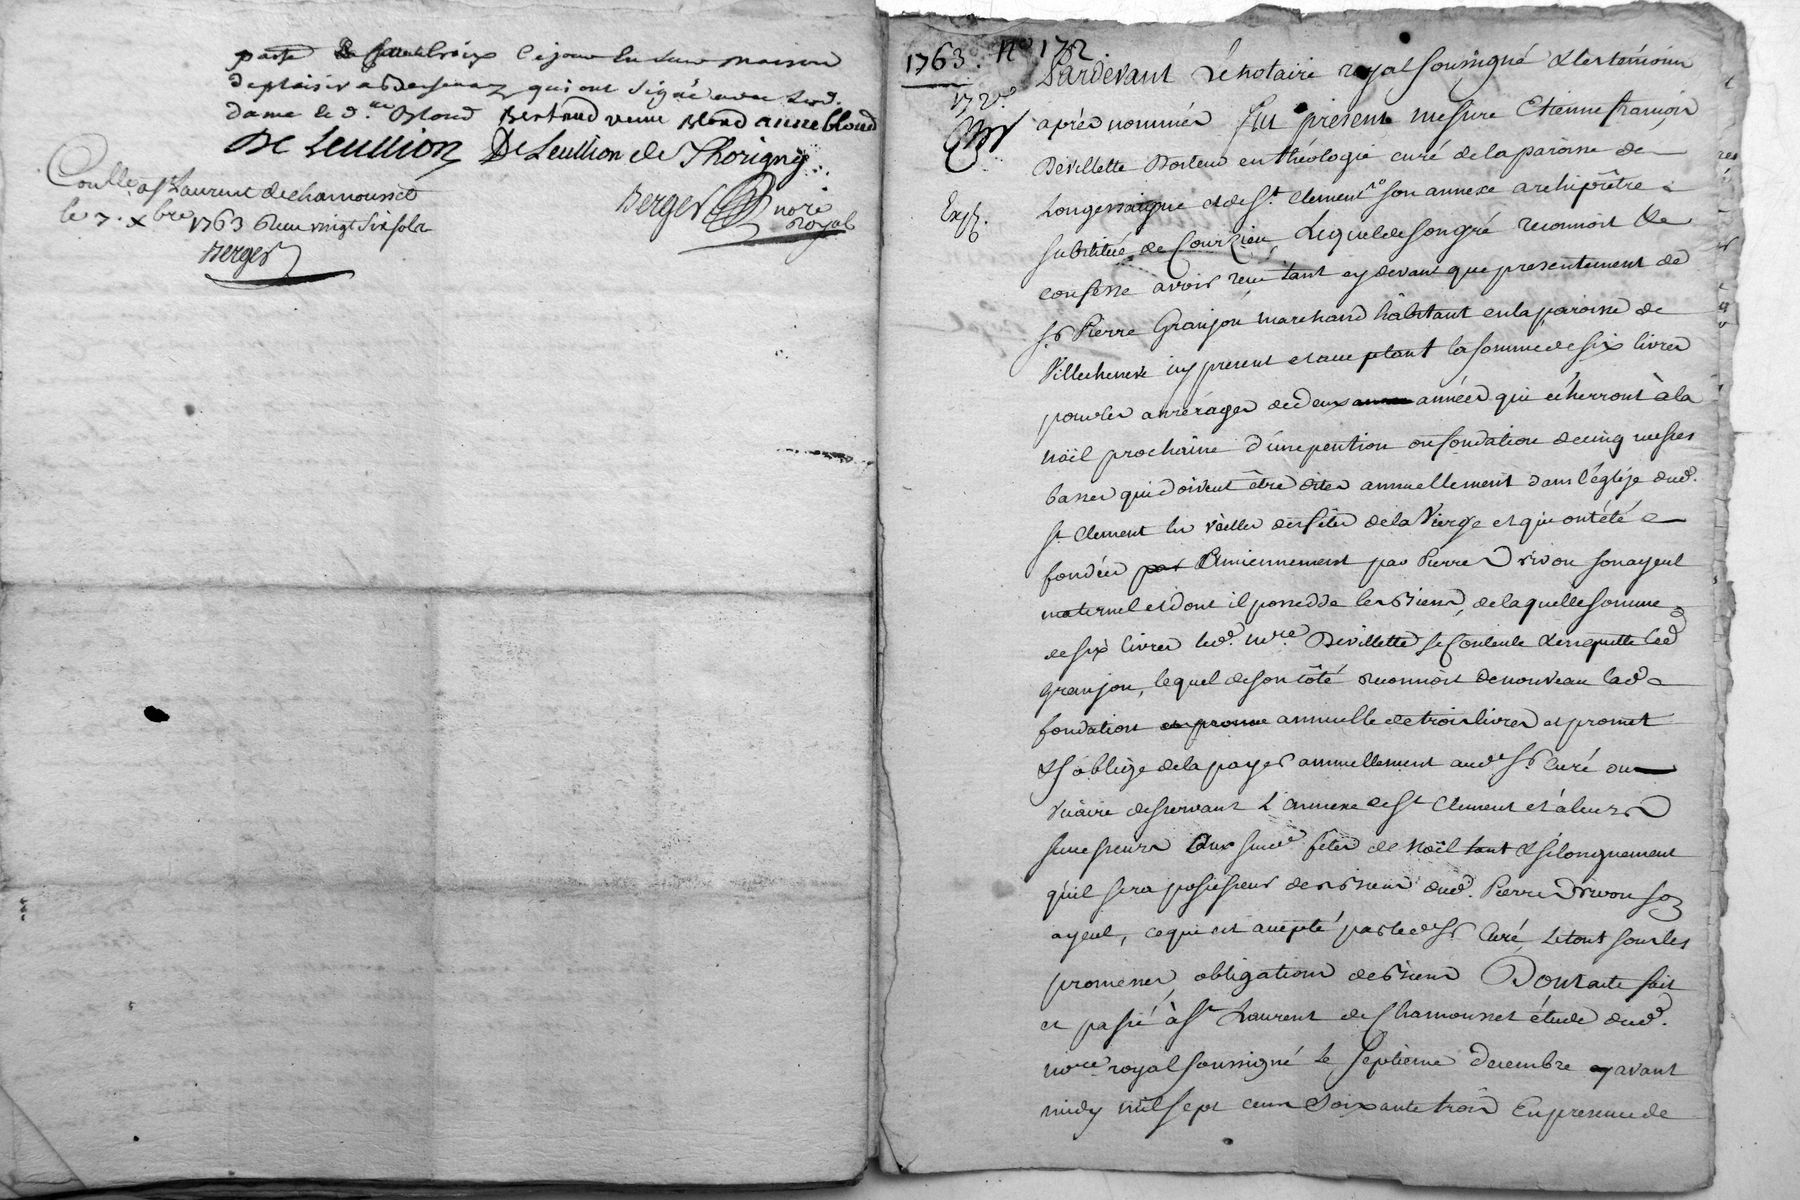 passé de Saintecroix ce jour lu dans maison
de plaisir a qui ont signé avec lad.
dame le d. Blond Bertrand veuve Blond anne blond
De Leullion De Leullion de Thorigny
Berger nore Royal
Conlle a st Laurent de chamousset
le 7. xbre 1763 Receu vingt six sols
Berger
1763. N° 172
172e
Exp.
Pardevant Le notaire royal soussigné & les témoins
après nommés fut présent messire Etienne françois
Devillette Docteur en théologie curé de la paroisse de
Longessaigne et de St. Clement son annexe archiprêtre
substitué de Courzieu, Lequel de son gré reconnoit &
confesse avoir reçu tant cy devant que presentement de
sr Pierre Granjon marchand habitant en la paroisse de
Villecheneve icy présent et acceptant la somme de six livres
pour les arrérages de deux années qui écherront à la
noël prochaine d'une pention ou fondation de cinq messes
basses qui doivent être dites annuellement dans l'églize dud.
st Clement les veilles des fêtes de la Vierge et qui ont été
fondées par Anciennement par Pierre Drivon son ayeul
maternel et dont il possedde les biens, de laquelle somme
de six livres led. mre Devillette se contente & en quitte led
Granjon, lequel de son côté reconnoit de nouveau lad
fondation et promet annuelle de trois livres et promet
& s'oblige de la payer annuellement aud sr Curé ou
vicaire desservant L'annexe de st Clement et à leurs
successeurs aux susd fêtes de Noël tant & si longuement
qu'il sera possesseur des biens dud. Pierre Drivon son
ayeul, ce qui est accepté par led sr Curé, Le tout sous les
promesses, obligations de biens Dont acte fait
et passé à st Laurent de Chamousset étude dud.
nore royal soussigné Le septième decembre avant
midy mil sept cent Soixante trois En presence de